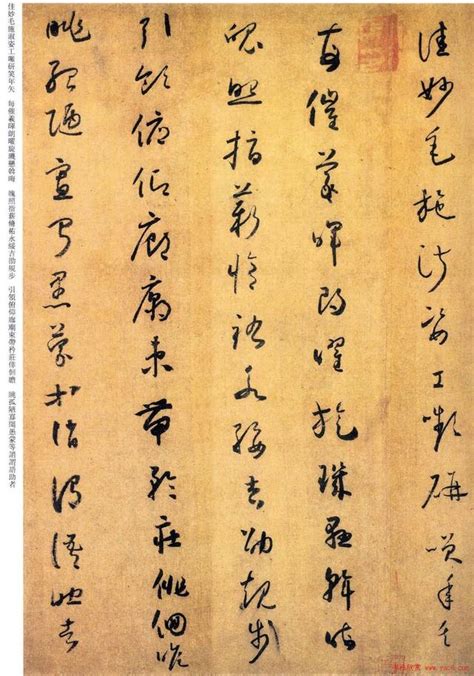 佳妙毛施淑姿工嚬研笑年矢
每催羲暉朗曜旋璣懸斡晦
魄照指薪脩祐永綏吉劭矩步
引領俯仰廊廟束帶矜莊徘徊瞻
眺孤陋寡聞愚蒙等誚謂語助者
佳妙毛施淑姿工嚬研笑年矢　每催羲暉朗曜旋璣懸斡晦　魄照指薪脩祐永綏吉劭矩步　引領俯仰廊廟束帶矜莊徘徊瞻　眺孤陋寡聞愚蒙等誚謂語助者